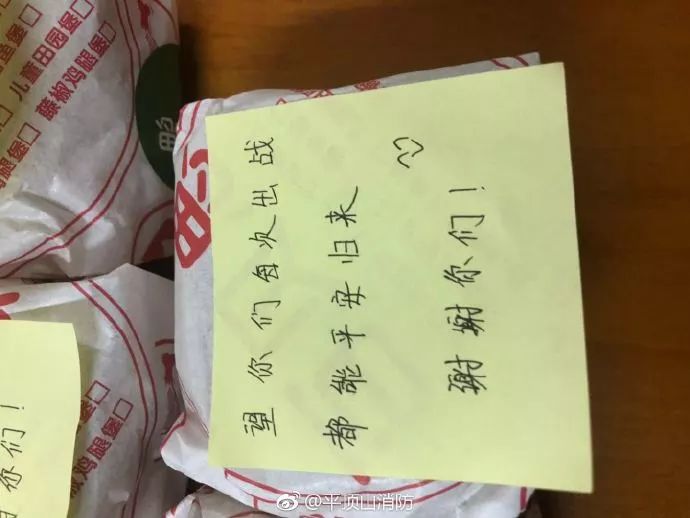 望你们每次出战
都能平安归来
谢谢你们！
儿童田园堡
藤椒鸡腿堡
鸡腿堡
你们！
@平顶山消防